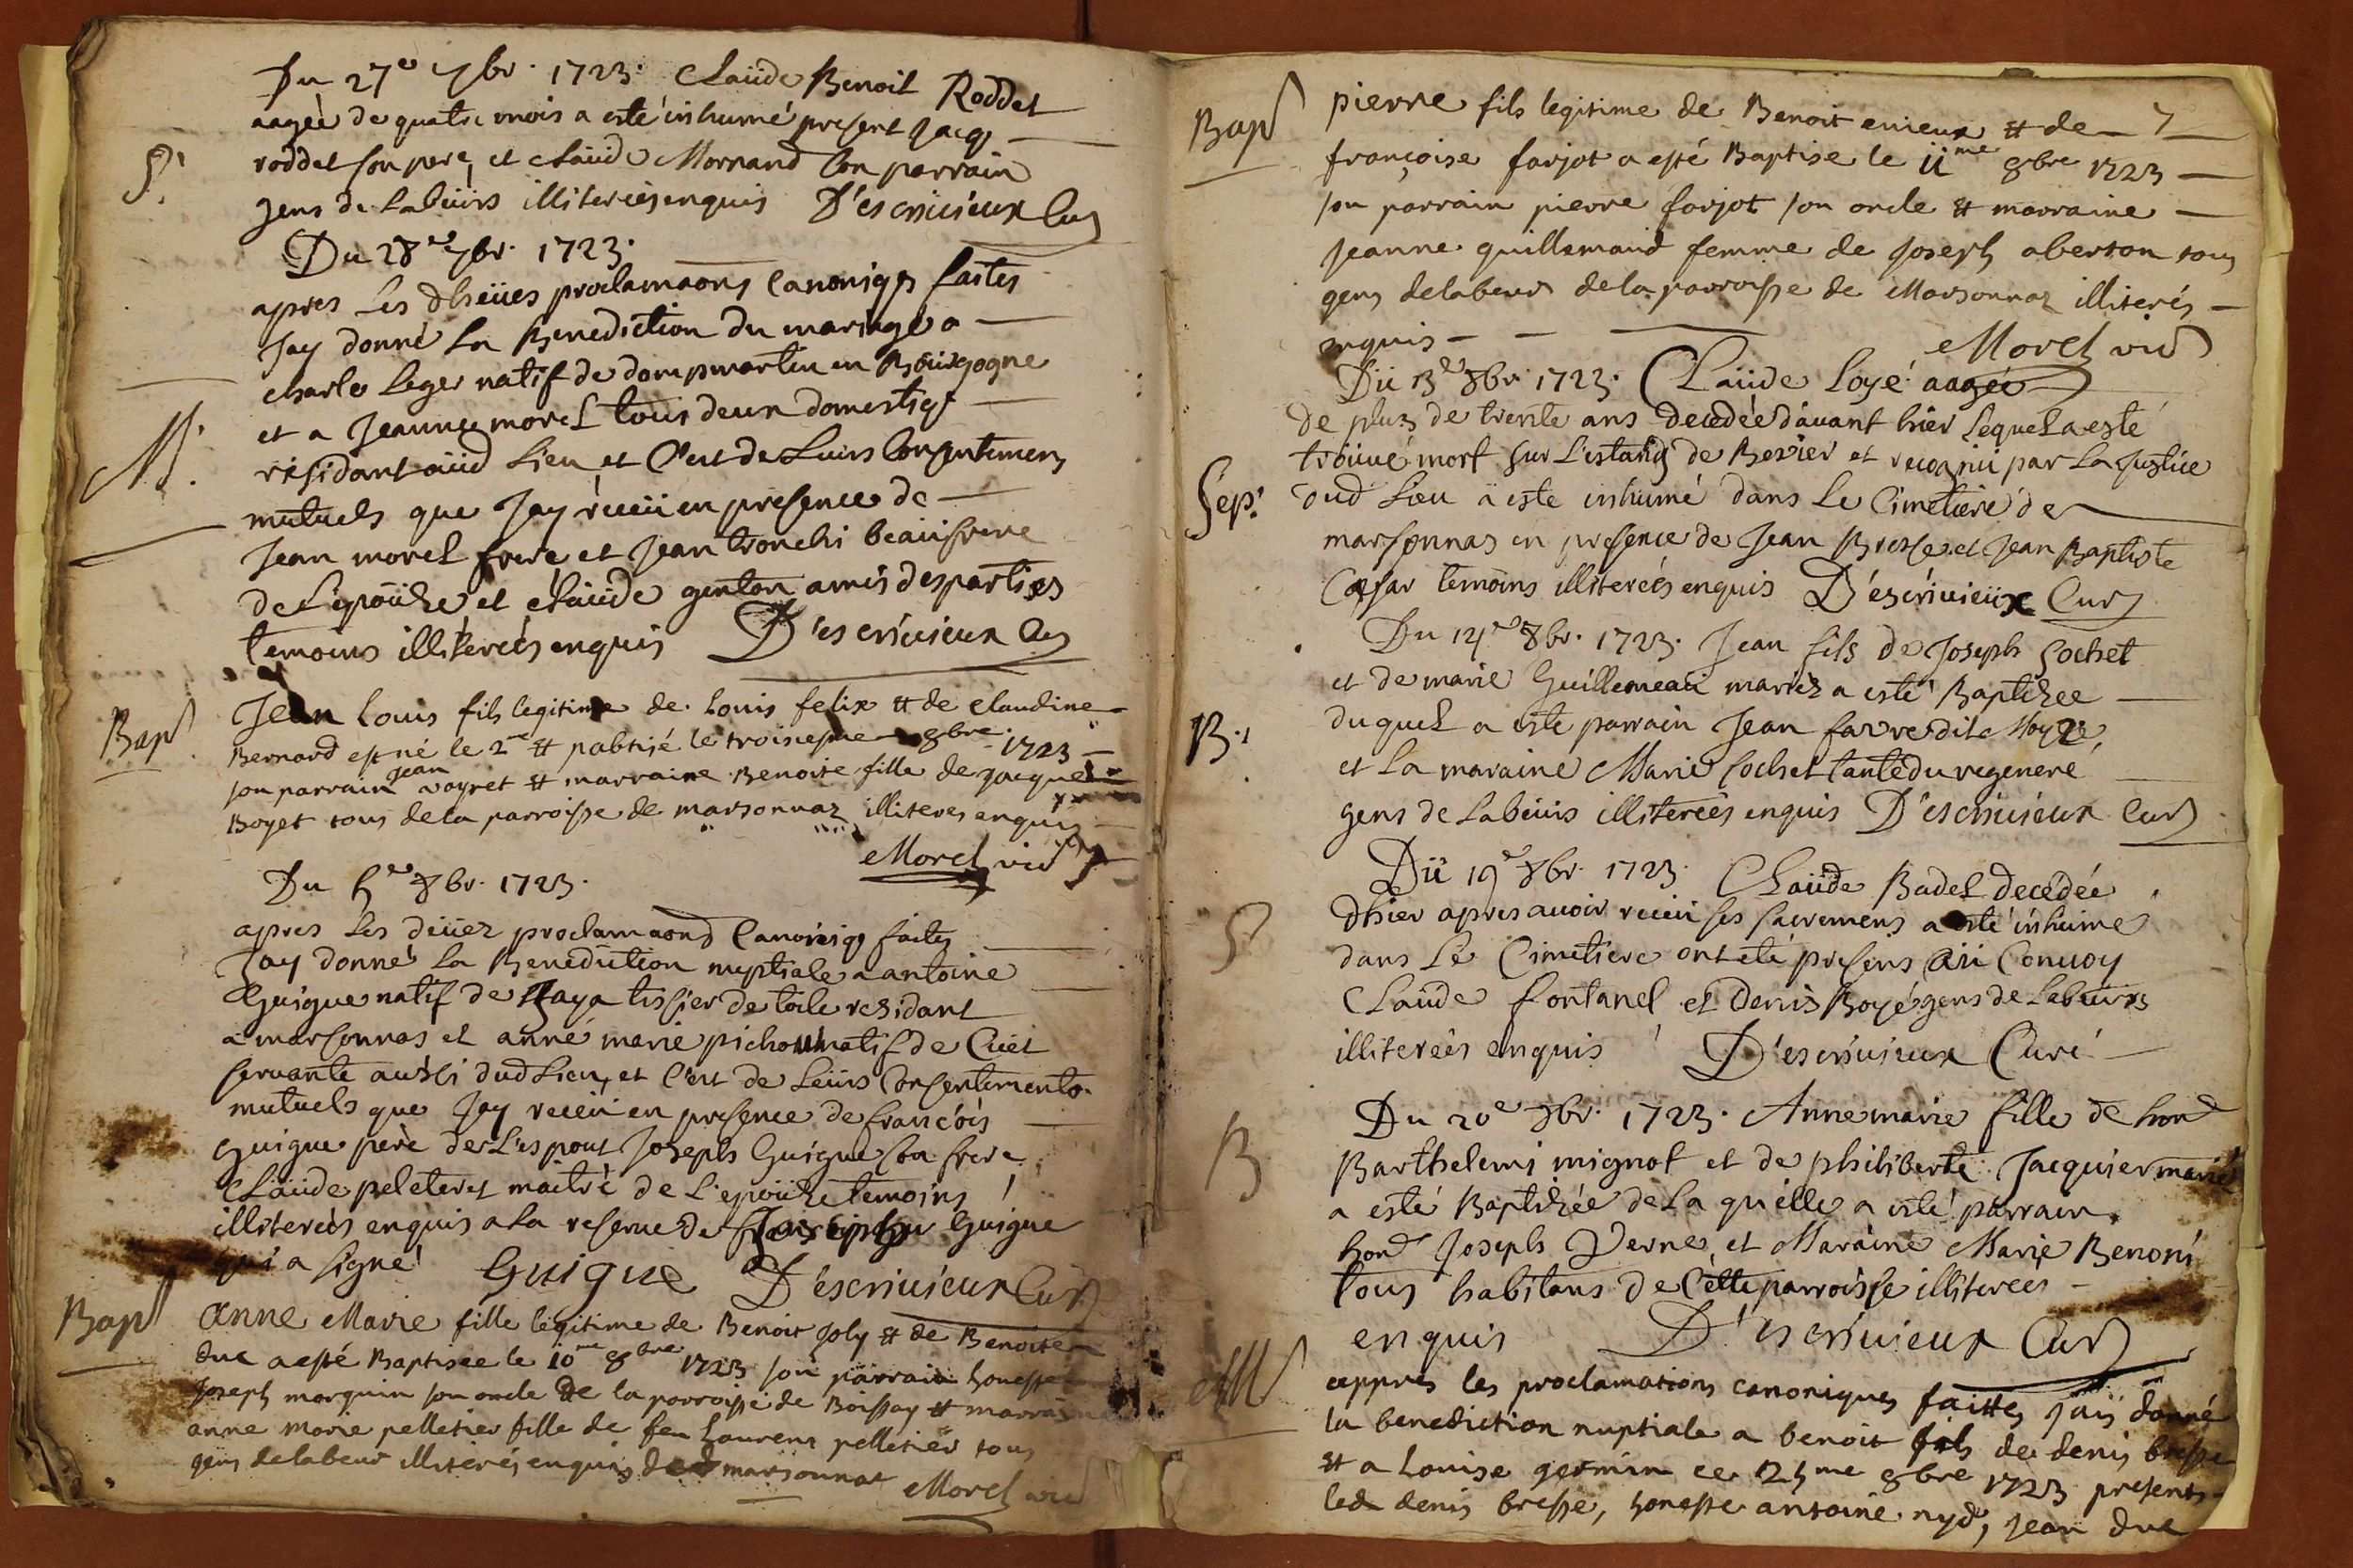 Du 27e 7br. 1723. Claüde Benoit Roddet
aagée de quatre mois a esté inhumé present Jacq
S. roddet son pere, et claüde Mornand son parrain
gens de Labeürs illitereés enquis D'escriuieux Cur
Du 28e 7br. 1723.
apres Les dheües proclamaons Canoniqs faites
Jay donné La Benediction du mariage a
charle Leger natif de dompmartin en Bourgogne
M. et a Jeanne morel tous deux domestiqs
résidant aüd Lieu et C'est de Luirs Consentemens
mutuels que Jay receü en presence de
Jean morel frere et Jean tronchi beaüfrere
de L'epoüze et claüde genton amis des parties
temoins illitereés enquis D'escriuieux Cur
Bap Jean Louis fils legitime de Louis felix et de claudine
Bernard est né le 2me et pabtisé le troisiesme 8bre 1723
son parrain jean voyret et marraine Benoite fille de jacques
Boyet tous dela parroisse de marsonnaz illiteres enquis
Morel vic
Du 5e 8br. 1723.
apres Les deüez proclamaons Canoniqs faites
Jay donné La Benediction nuptiale a antoine
Guigue natif de Baya tissier de toile residant
a marsonnas et anne marie pichon natif de Cüet
seruante aussi dud Lieu, et C'est de Leürs Consentements
mutuels que Jay receü en presence de francois
guigue père de L'espout Joseph Guigue son frere
Claüde peleteret maitre de L'epoüze temoins
illitereés enquis a La reserue de Joseph Guigue
qui a signé Guigue D'escriuieux Cur
Bap anne Marie fille legitime de Benoit joly et de Benoite
duc a esté Baptisee le 10me 8bre 1723 son parrain honeste
joseph morquin son oncle de la parroisse de Boissay et marraine
anne marie pelletier fille de feu Laurent pelletier tous
gens delabeur illiterés enquis de marsonnat Morel vic
Bap pierre fils legitime de Benoit enieux et de
françoise farjot a esté Baptise le 11me 8bre 1723
son parrain pierre farjot son oncle et marraine
jeanne guillemaud femme de joseph aberton tous
gens delabeur dela parroisse de Marsonnaz illiterés
enquis Morel vic
Dü 13e 8br. 1723. Claüde Loyé aagée
de plus de trente ans decedée d'auant hier Lequel a esté
troüué mort sur L'estang de Bevier et recognü par La justice
Sep. dud Lieu a esté inhumé dans Le Cimetiere de
marsonnas en presence de Jean Bresse et Jean Baptiste
Cesar temoins illitereés enquis D'escriuieüx Cur
Du 14e 8br. 1723. Jean fils de Joseph Cochet
et de marie Guillemeaü mariez a esté Baptizee
B. duquel a esté parrain Jean favre dit Moyze
et La maraine Marie Cochet tante du regeneré
gens de Labeürs illitereés enquis D'escriuieux Cur
Dü 19e 8br. 1723. Claüde Badel decedée
S. dhier apres auoir receü ses sacremens a esté inhüme
dans Le Cimetiere ont eté presens aü Conuoy
Claüde fontanel et Denis Boyé gens de Labeürs
illitereés enquis D'escriuieux Curé
Du 20e 8br. 1723. Anne marie fille de hond
B Barthelemi mignot et de philiberte Jacquier mariés
a esté Baptizée de La quelle a esté parrain
hond Joseph Verne, et Maraine Marie Benoni
tous habitans de Cette parroisse illitereés
enquis D'escriuieux Cur
M appres les proclamations canoniques faittes jaÿ donné
la benediction nuptiale a benoit fils de denis bresse
et a Louise germin ce 25me 8bre 1723 presents
led denis bresse, honeste antoine nyd, jean duc